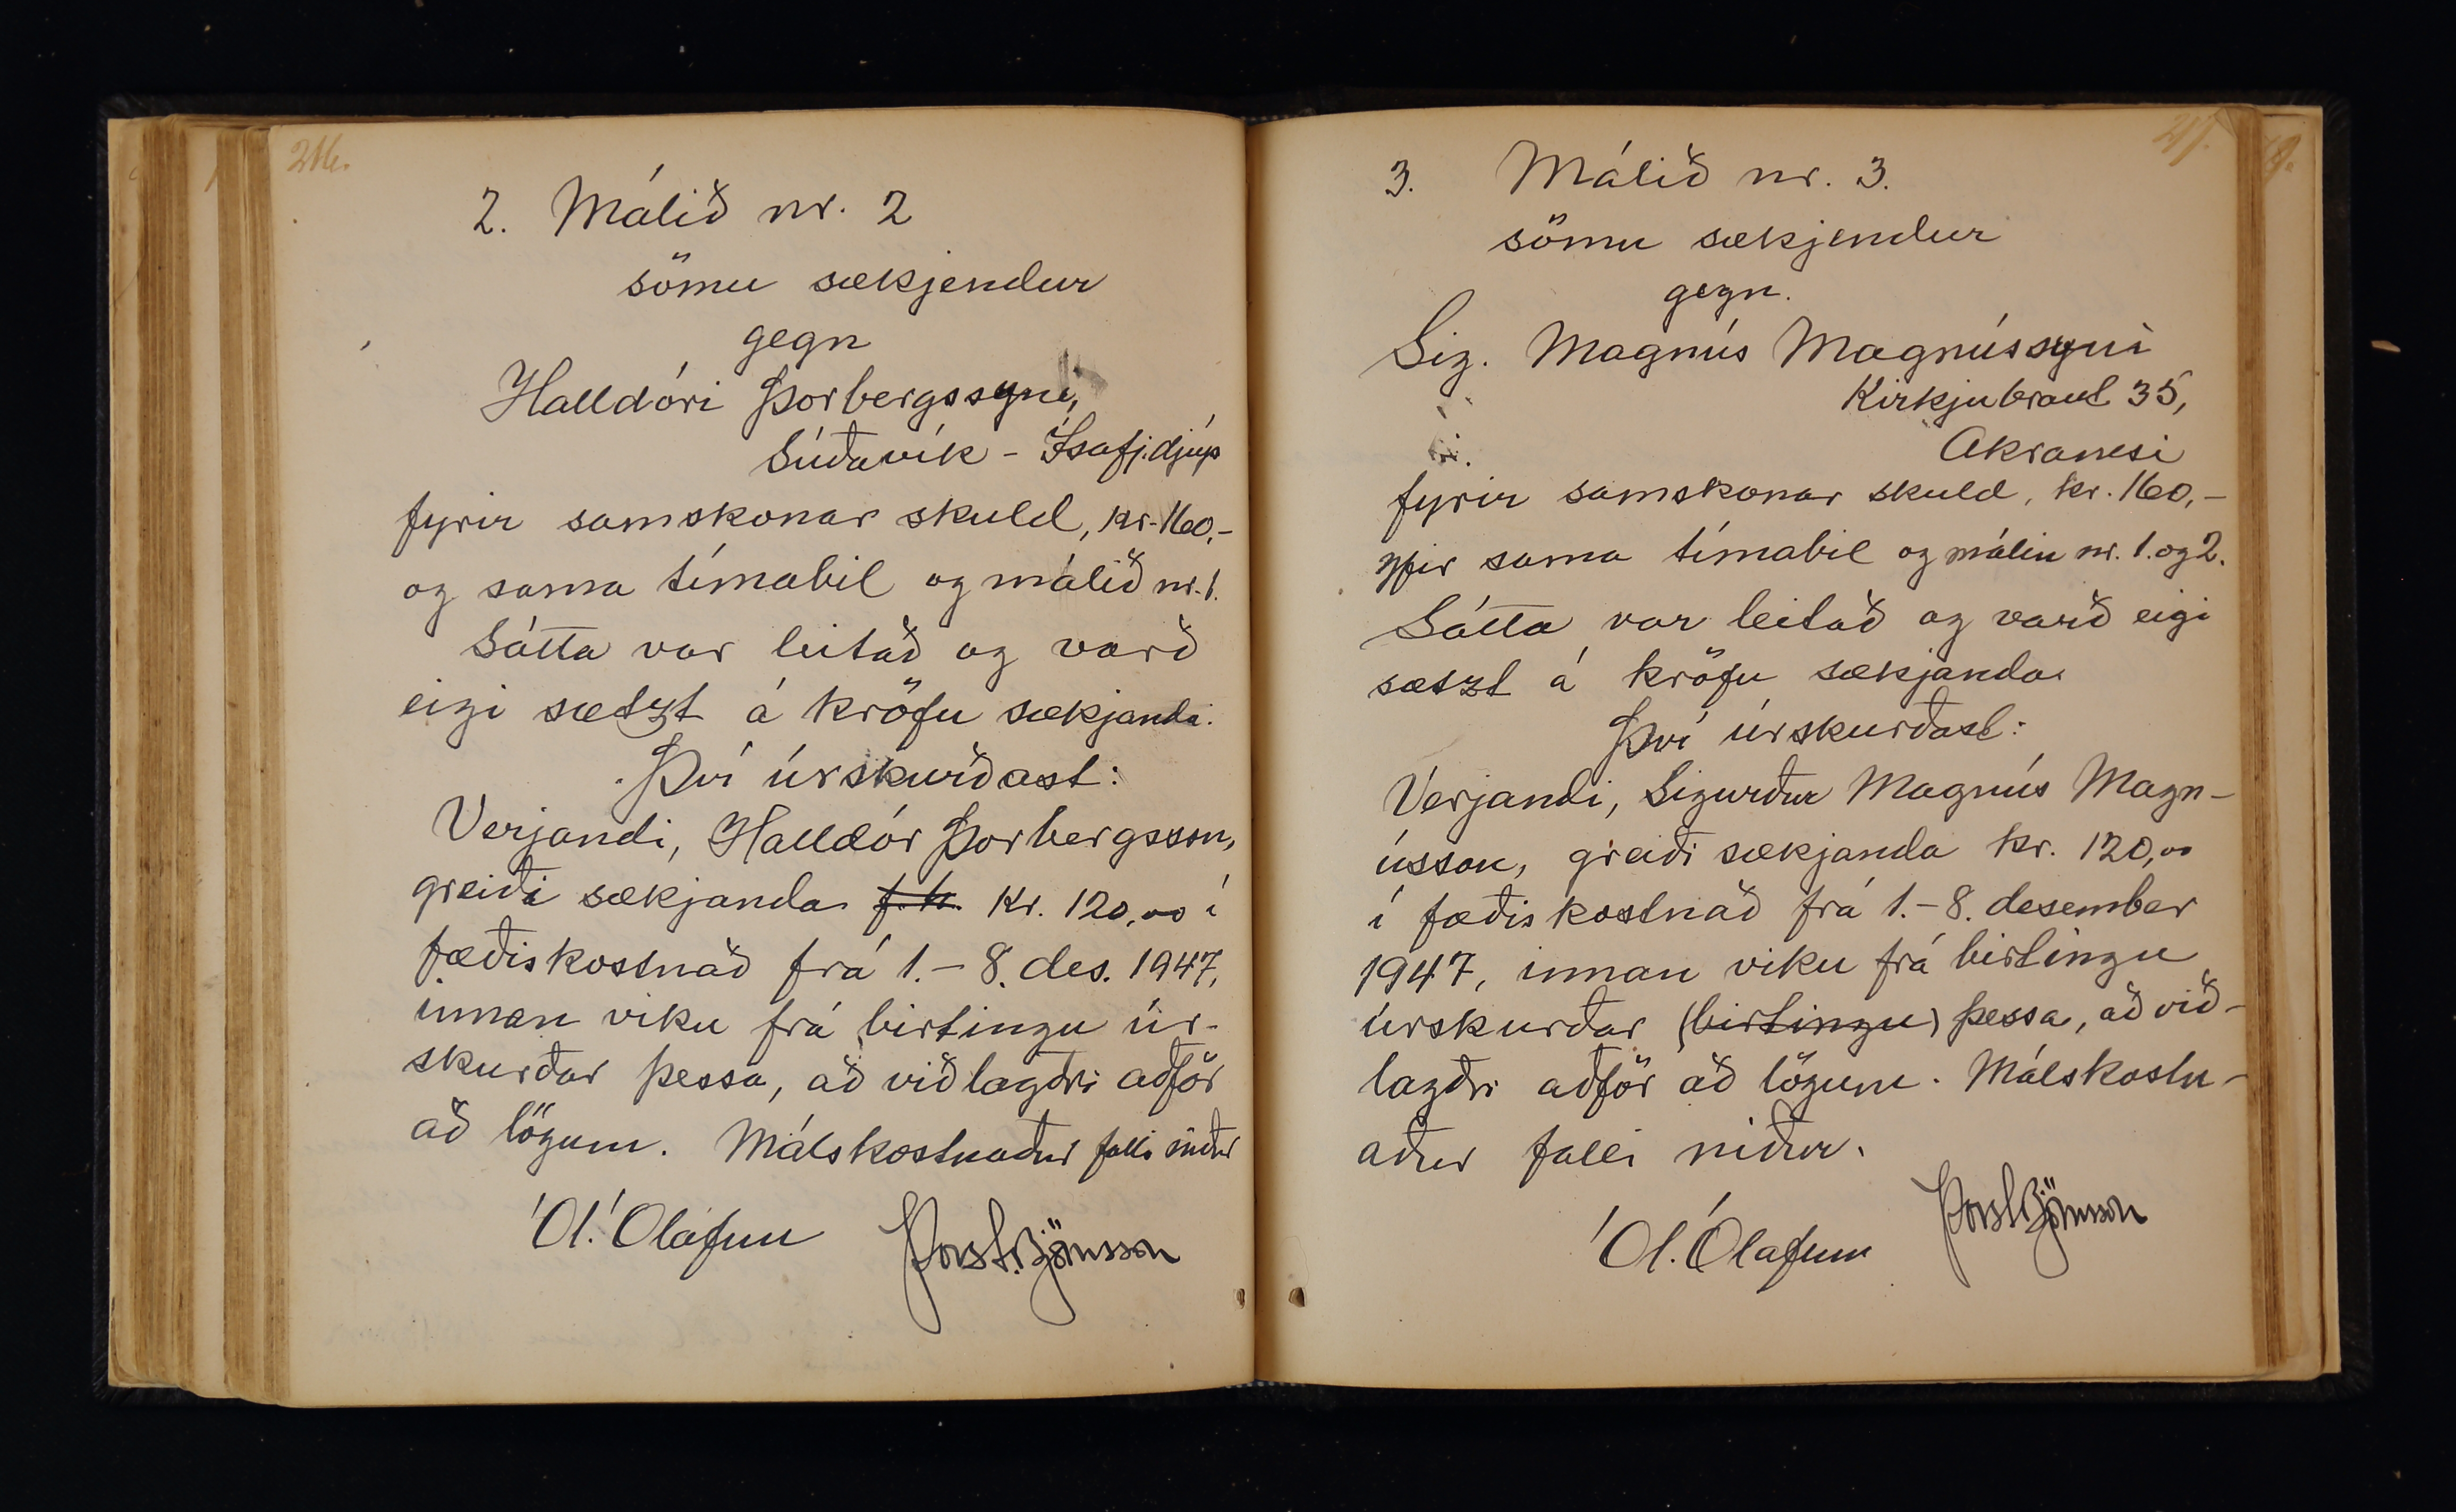 216.
2. Málið nr. 2
sömu sækjendur
gegn
Halldóri Þorbergssyni,
Súðavík - Ísafj.djúp
fyrir samskonar skuld, kr. 160.-
og sama tímabil og málið nr. 1.
Sátta var leitað og varð
eigi sætzt á kröfu sækjanda.
Því úrskurðast:
Verjandi, Halldór Þorbergsson,
greiði sækjanda f.h. kr. 120,00 í
fæðiskostnað frá 1. - 8. des. 1947,
innan viku frá birtingu úr-
skurðar þessa, að viðlagðri aðför
að lögum. Málskostnaður falli niður
Ól. Ólafsson Þorst. Björnsson
217.
3. Málið nr. 3.
sömu sækjendur
gegn.
Sig. Magnús Magnússyni
Kirkjubraut 35,
Akranesi
fyrir samskonar skuld, kr. 160,-
yfir sama tímabil og málin nr. 1. og 2.
Sátta var leitað og varð eigi
sætzt á kröfu sækjanda
Því úrskurðast:
Verjandi, Sigurður Magnús Magn-
ússon, greiði sækjanda kr. 120,00
í fæðiskostnað frá 1. - 8. desember
1947, innan viku frá birtingu
úrskurðar (birtingu) þessa, að við-
lagðri aðför að lögum. Málskostn-
aður falli niður.
Ól. Ólafsson Þorst Björnsson